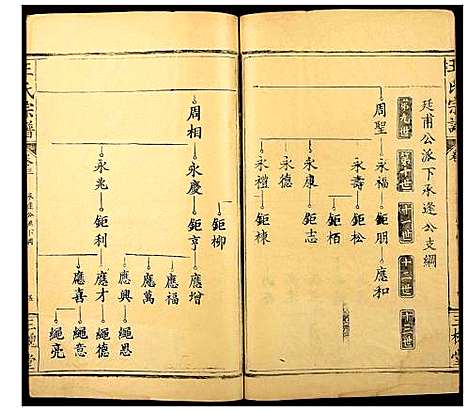 王氏宗譜
廷甫公派下承逢公支綱
第九世
十一世
十二世
十三世
周聖
永福 鉅朋 應和
永壽 鉅松
鉅栢
永康 鉅志
永德
永禮 鉅棟
三槐堂
鉅柳
周相
永慶 鉅亨 應增
應福
應萬
永兆 鉅利
應興 繩恩
應才 繩德
繩意
應喜 繩亮
王氏宗譜
卷三
三槐堂